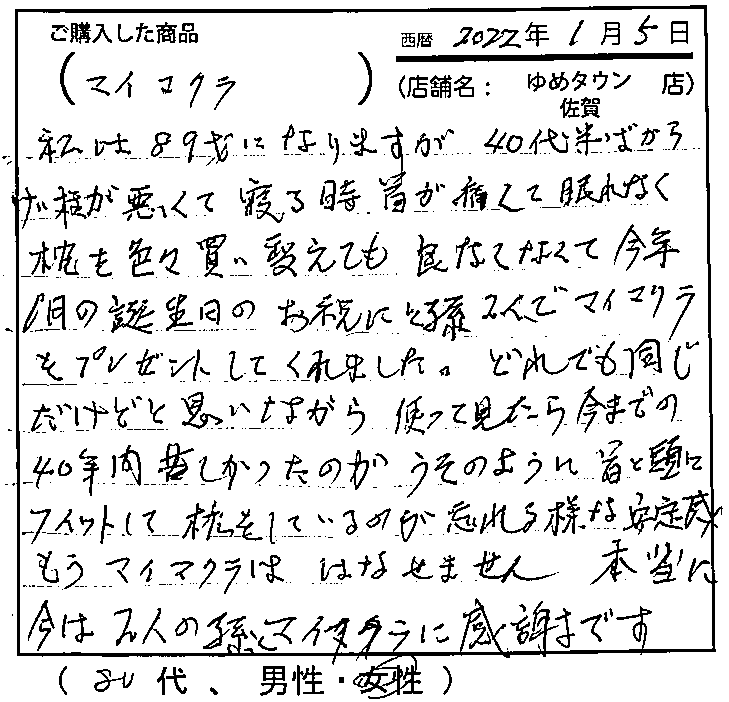 ご購入した商品
西暦 2022年 1月 5日
(マイマクラ)
(店舗名: ゆめタウン 佐賀 店)
私は89才になりますが 40代半ばから
が悪くて 寝る時 首が痛くて 眠れなく
枕を色々買い変えても 良なくて 今年
1月の誕生日の お祝にと孫2人で マイマクラ
をプレゼントしてくれました。 どれでも同じ
だけどと思いながら 使って見たら今までの
40年間苦しかったのが うそのように 首と頭に
フィットして 枕をしているのが忘れる様な安定感
もうマイマクラは はなせません 本当に
今は2人の孫とマイマクラに感謝までです
(80代、男性・女性)